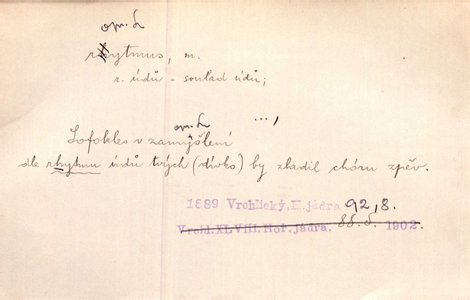 opr. L
rhytmus, m.
r. údů = soulad údů;
opr. L ...,
Sofokles v zamyšlení
dle rhytmu údů tvých (dívko) by zladil chóru zpěv.
1889 Vrchlický, H. jádra 92, 8.
Vrchl. XLVIII. Hoř. jádra. 88. S. 1902.